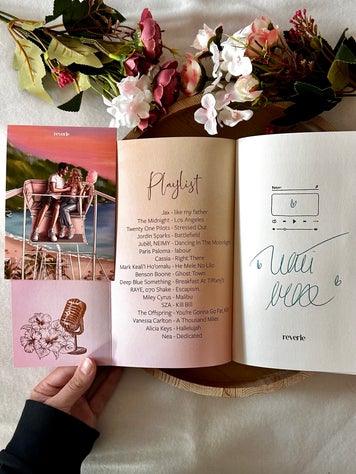 reverie
Playlist
Jax - like my father
The Midnight - Los Angeles
Twenty One Pilots - Stressed Out
Jordin Sparks - Battlefield
Jubël, NEIMY - Dancing In The Moonlight
Paris Paloma - labour
Cassia - Right There
Mark Keali'i Ho'omalu - He Mele No Lilo
Benson Boone - Ghost Town
Deep Blue Something - Breakfast At Tiffany's
RAYE, 070 Shake - Escapism.
Miley Cyrus - Malibu
SZA - Kill Bill
The Offspring - You're Gonna Go Far, Kid
Vanessa Carlton - A Thousand Miles
Alicia Keys - Hallelujah
Nea - Dedicated
reverie